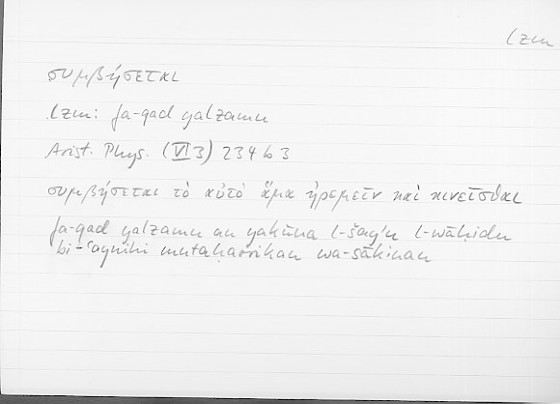 lzm
συμβήσεται
lzm: fa-qad yalzamu
Arist. Phys. (VI 3) 234 b 3
συμβήσεται τὸ αὐτὸ ἅμα ἠρεμεῖν καὶ κινεῖσθαι
fa-qad yalzamu an yakūna l-šayʾu l-wāḥidu
bi-ʿaynihi mutaḥarrikan wa-sākinan